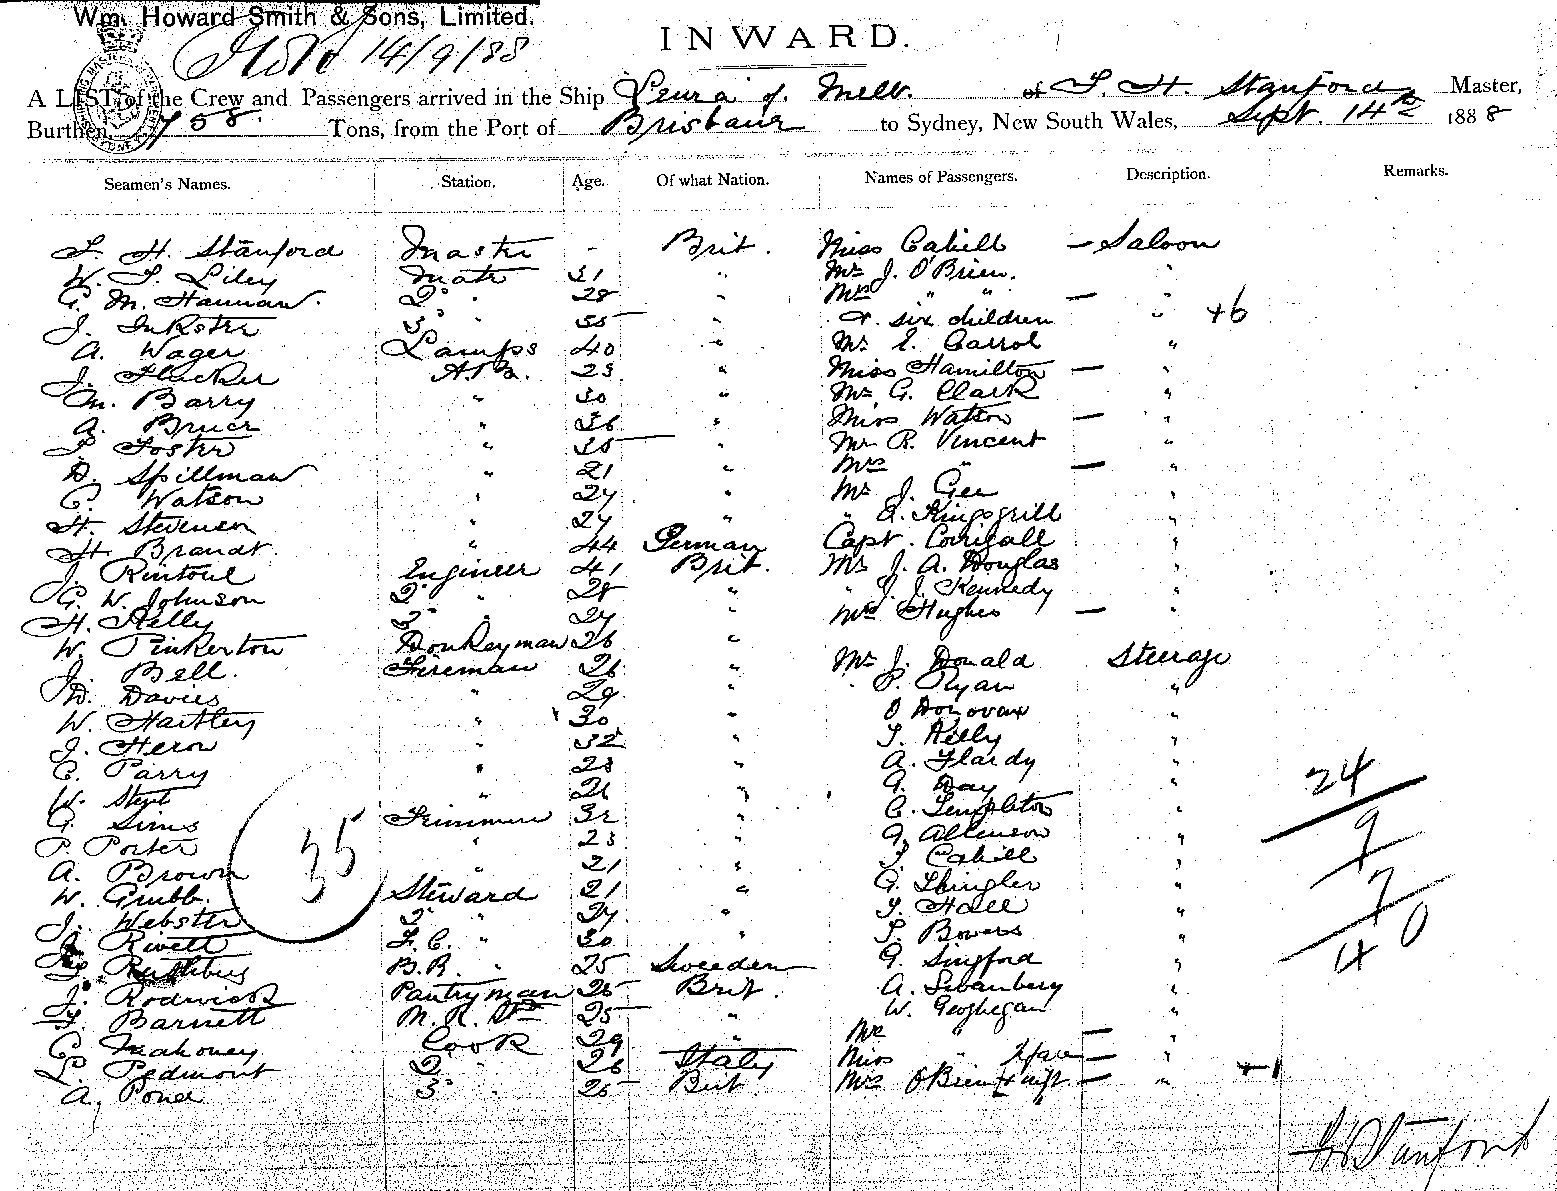 Wm. Howard Smith & Sons, Limited.
14/9/88
INWARD.
A LIST of the Crew and Passengers arrived in the Ship Leura of Melb. of T. H. Stanford Master,
Burthen 758 Tons, from the Port of Brisbane to Sydney, New South Wales, Sept. 14th 1888
Seamen's Names. Station. Age. Of what Nation. Names of Passengers. Description. Remarks.
T. H. Stanford Master - Brit. Miss Cahill - Saloon
W. T. Liley Mate 31 " Mr J. O'Brien. "
G. M. Hannan. 2d " 28 " Mrs " " - "
J. Inkster 3d " 35 " & six children " +6
A. Wager Lamps 40 " Mr E. Carrol "
J. Flucker A.B. 23 " Miss Hamilton - "
M. Barry " 30 " Mr G. Clark "
A. Bruer " 36 " Miss Watson - "
T. Foster " 35 " Mr R. Vincent "
D. Spillman " 21 " Mrs " - "
C. Watson " 27 " Mr J. Gee "
H. Stevenson " 27 " " Kingsgrill "
H. Brandt. " 44 German Capt. Corrigall "
J. Rintoul Engineer 41 Brit. Mr J. A. Douglas "
G. W. Johnson 2d " 28 " " J. J. Kennedy "
H. Kelly 3d " 27 " Mrs Hughes - "
W. Pinkerton Donkeyman 26 "
J. Bell. Fireman 26 " Mr J. Donald Steerage
D. Davies " 29 " P. Ryan "
W. Hartley " 30 " O Donovan "
J. Heron " 32 " T. Kelly "
C. Parry " 23 " A. Hardy "
W. " 26 " G. Day " 24
G. Sims Trimmer 32 " C. Templeton "
P. Porter " 23 " G. Allenson " 9
A. Brown 35 " 21 " T. Cahill "
W. Grubb. Steward 21 " G. Shingler " 7
J. Webster 2d " 27 " T. Hall " 0
Rivett F.C. " 30 " T. Bowers " 40
B.R. " 25 Sweeden G. Singford "
J. Rodwick Pantryman 25 Brit. A. Swanberg "
T. Barnett M. R. Std 25 " W. Geoghegan "
C. Mahoney Cook 29 " Mrs " - "
L. Pedmont 2d " 26 Italy Miss " - "
A. Pond 3d " 25 Brit Mrs O'Brien & inft - " +1
Stanford